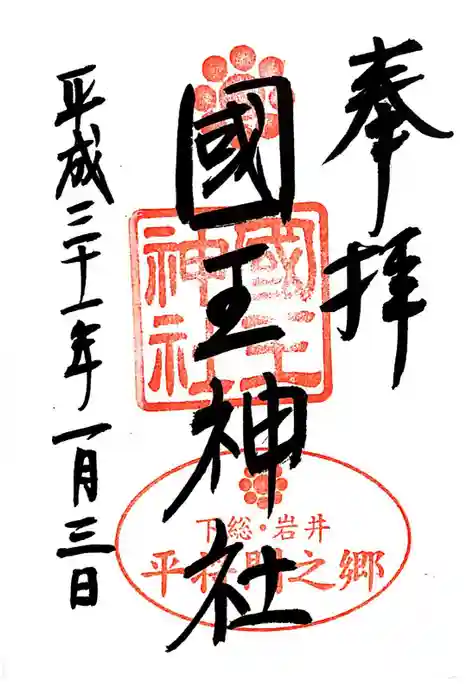 奉拝
國王神社
國王神社
下総・岩井
平将門之郷
平成三十一年一月三日